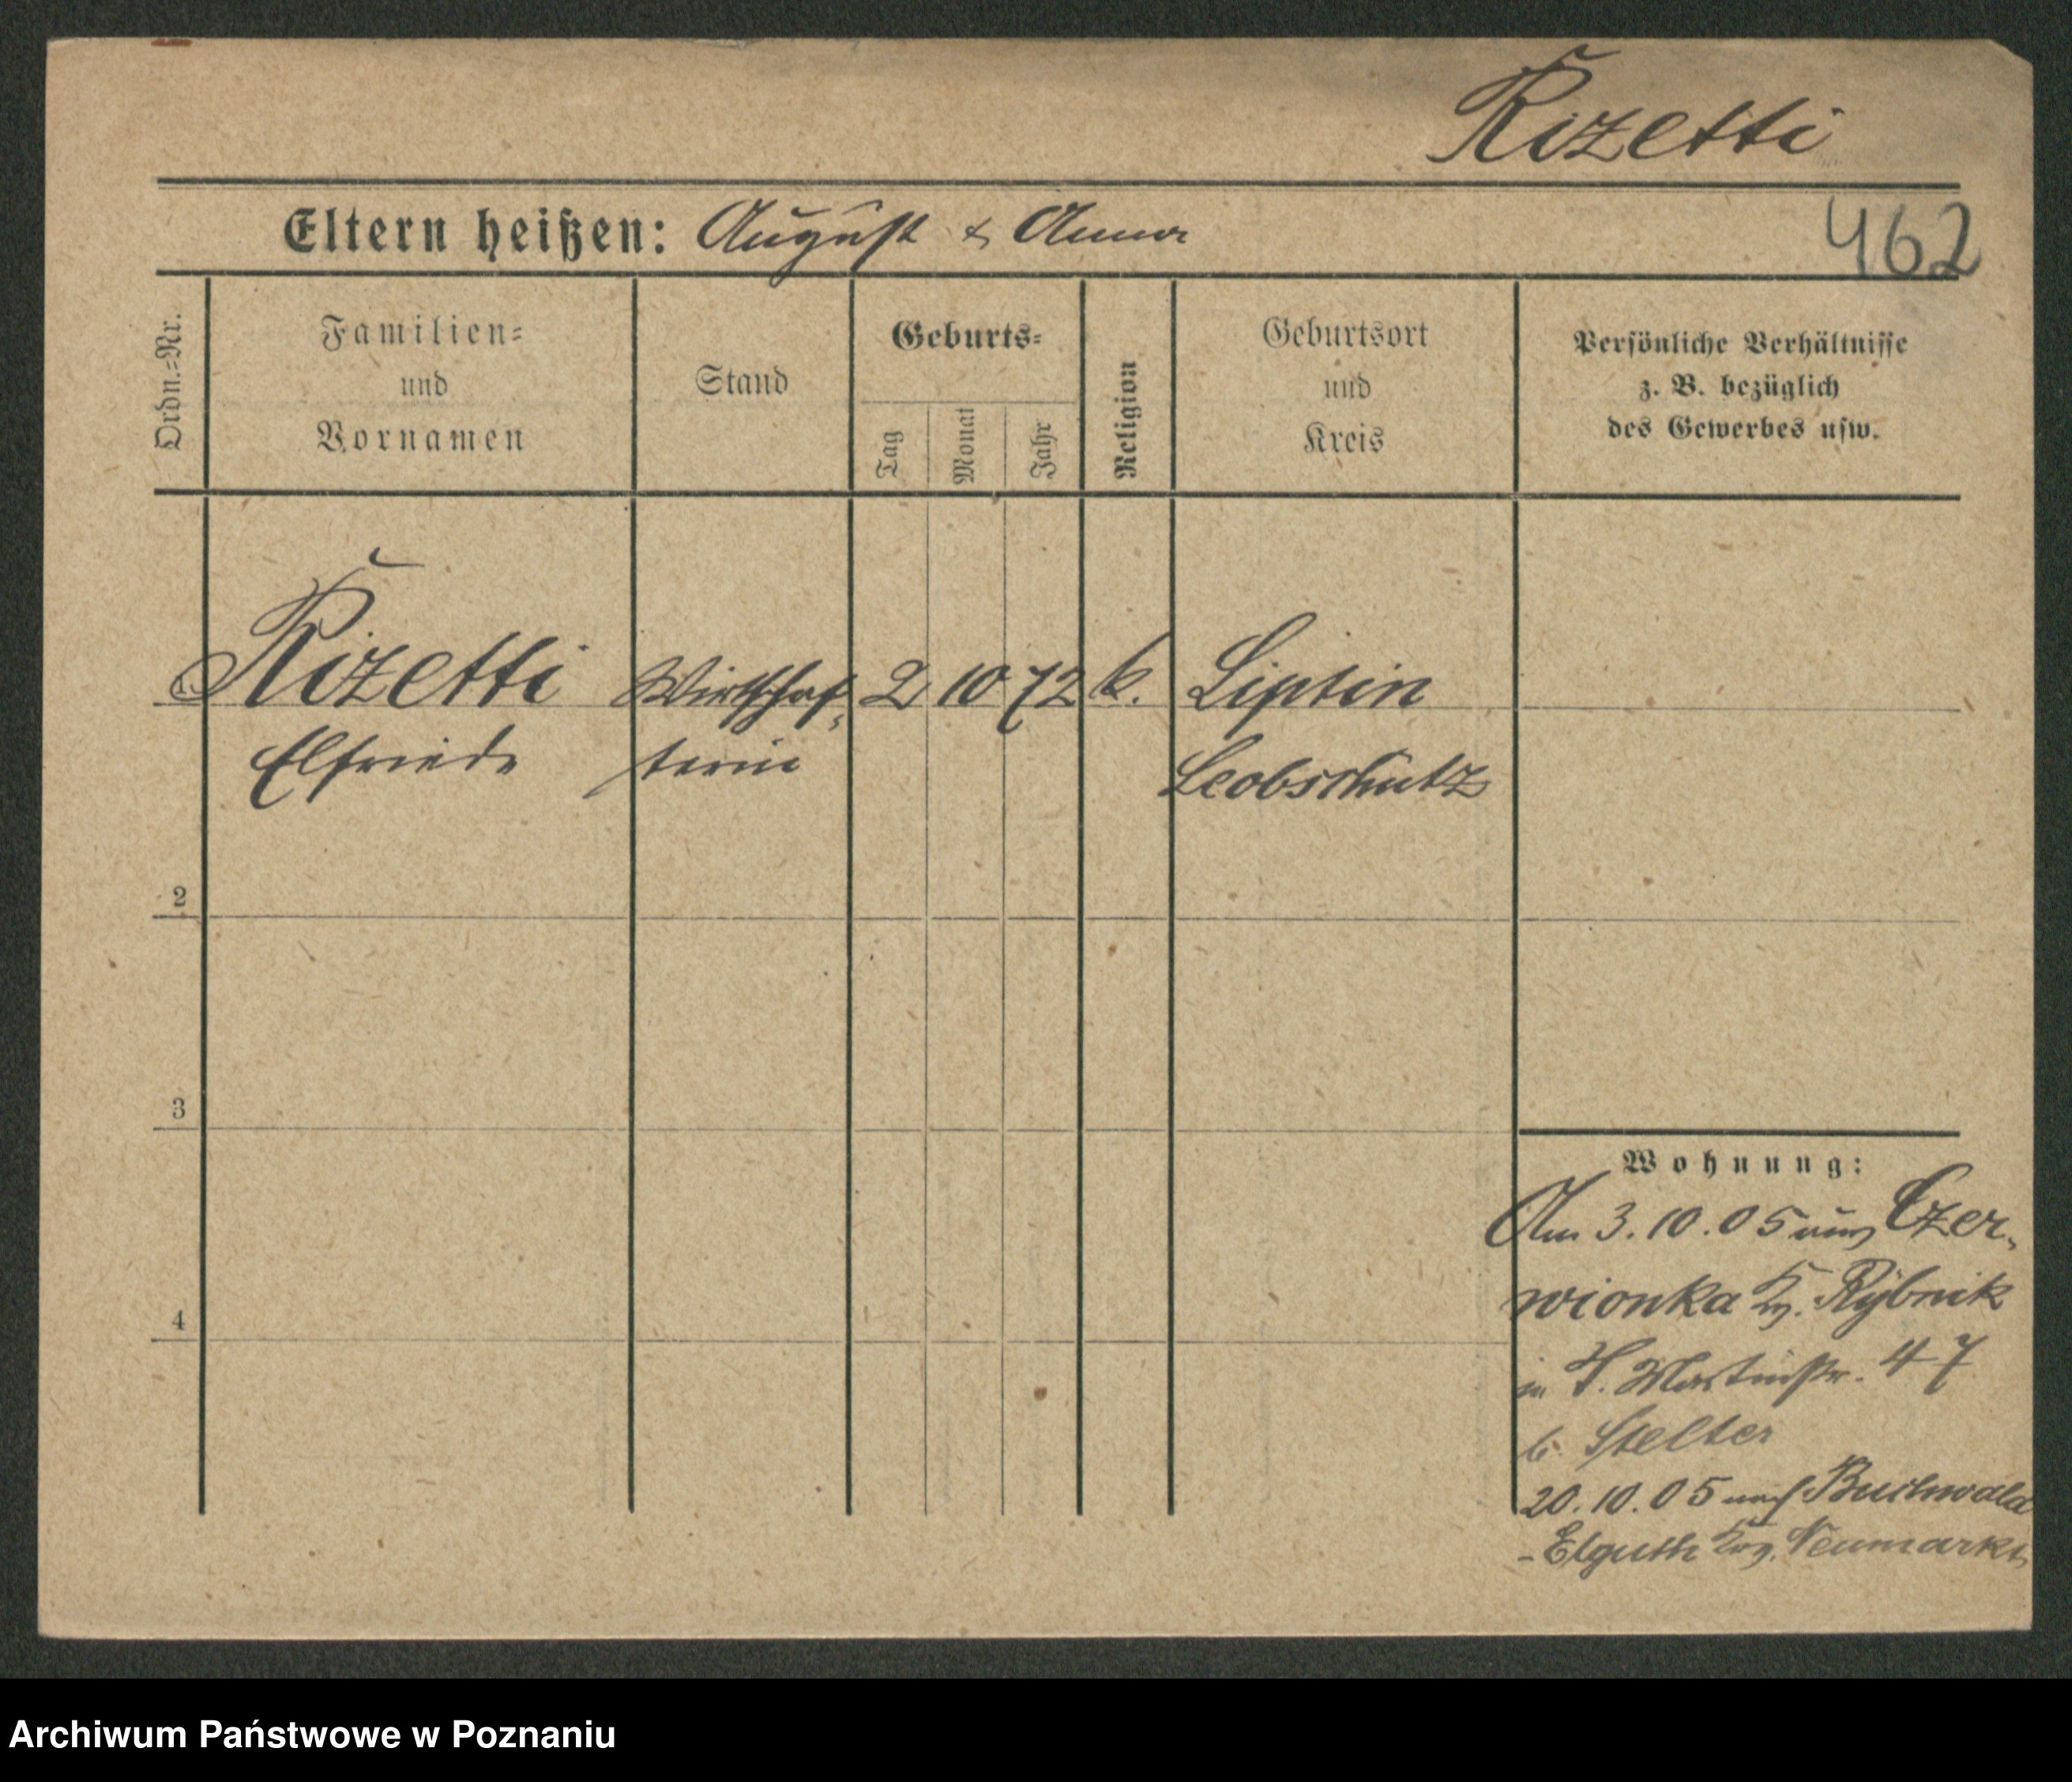 Rizetti
Eltern heißen: August & Anna
462
Ordn.=Nr.
Familien=
und
Vornamen
Stand
Geburts=
Tag
Monat
Jahr
Religion
Geburtsort
und
Kreis
Persönliche Verhältnisse
z. B. bezüglich
des Gewerbes usw.
1. Rizetti Wirtschaf- 2 10 72 k. Liptin
Elfriede terin Leobschütz
2
3
4
Wohnung:
Am 3.10.05 aus Czer-
wionka Kr. Rybnik
in St. Martinstr. 47
b. Stelter
20.10.05 nach Buchwald
-Elguth Krs. Neumarkt
Archiwum Państwowe w Poznaniu